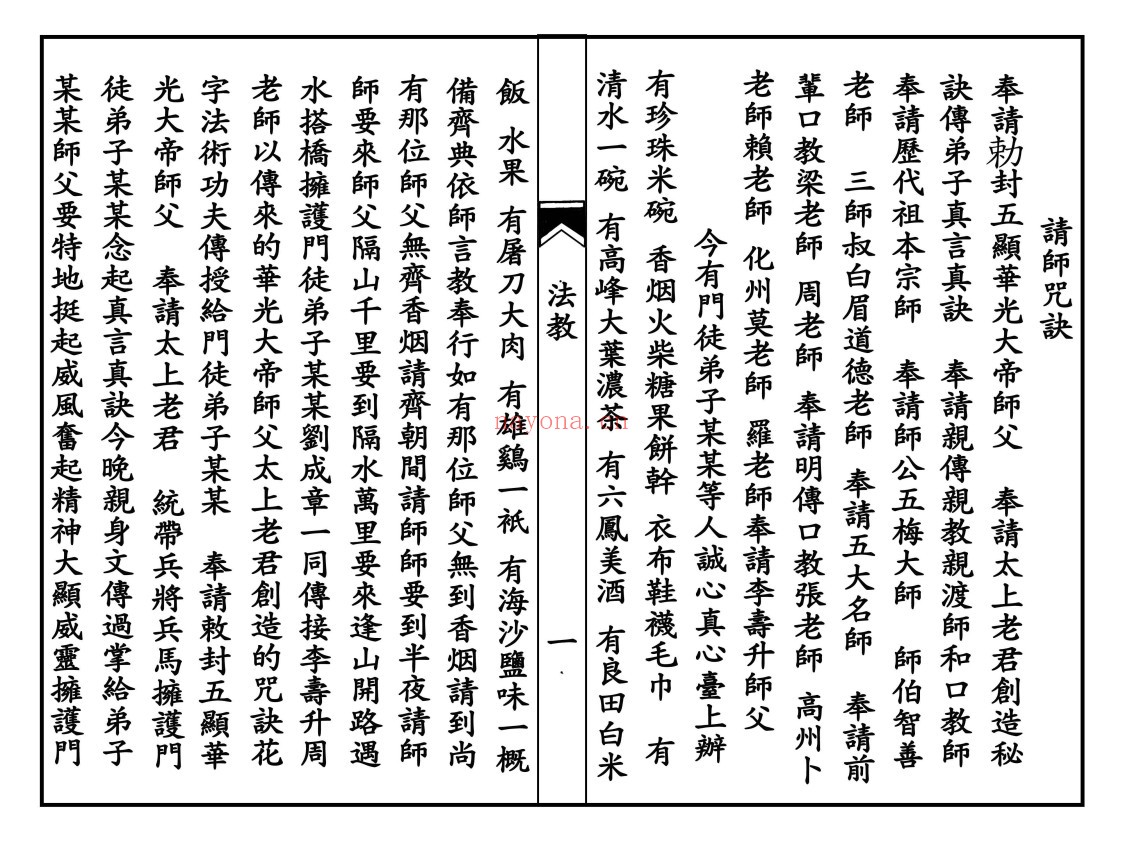 請師咒訣
奉請勅封五顯華光大帝師父 奉請太上老君創造秘
訣傳弟子真言真訣 奉請親傳親教親渡師和口教師
奉請歷代祖本宗師 奉請師公五梅大師 師伯智善
老師 三師叔白眉道德老師 奉請五大名師 奉請前
輩口教梁老師 周老師 奉請明傳口教張老師 高州卜
老師賴老師 化州莫老師 羅老師奉請李壽升師父
今有門徒弟子某某等人誠心真心臺上辦
有珍珠米碗 香烟火柴糖果餅幹 衣布鞋襪毛巾 有
清水一碗 有高峰大葉濃茶 有六鳳美酒 有良田白米
法教
一
飯 水果 有屠刀大肉 有雄鷄一衹 有海沙鹽味一概
備齊典依師言教奉行如有那位師父無到香烟請到尚
有那位師父無齊香烟請齊朝間請師師要到半夜請師
師要來師父隔山千里要到隔水萬里要來逢山開路遇
水搭橋擁護門徒弟子某某劉成章一同傳接李壽升周
老師以傳來的華光大帝師父太上老君創造的咒訣花
字法術功夫傳授給門徒弟子某某 奉請敕封五顯華
光大帝師父 奉請太上老君 統帶兵將兵馬擁護門
徒弟子某某念起真言真訣今晚親身文傳過掌給弟子
某某師父要特地挺起威風奮起精神大顯威靈擁護門